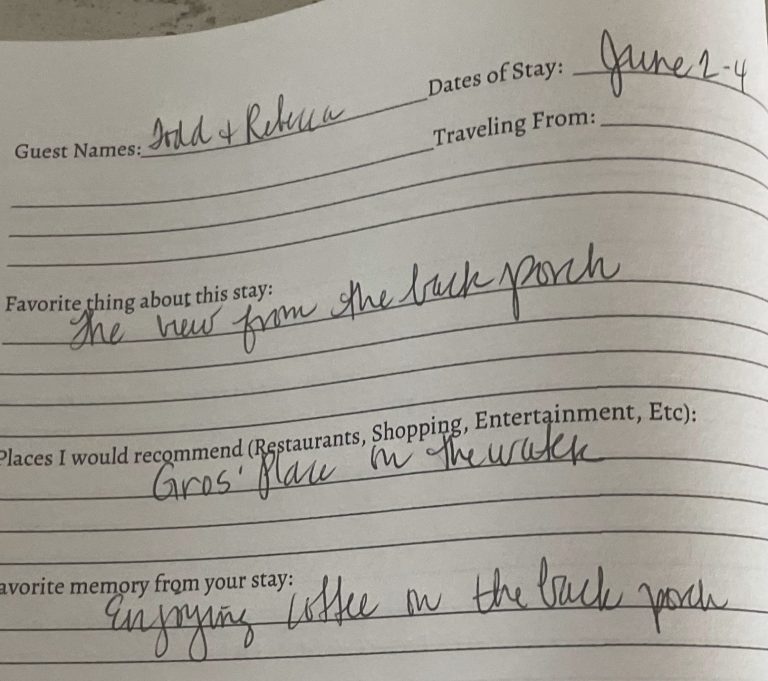 Dates of Stay: June 2-4
Guest Names: Todd + Rebecca
Traveling From:
Favorite thing about this stay:
The view from the back porch
Places I would recommend (Restaurants, Shopping, Entertainment, Etc):
Gros' Place on the water
avorite memory from your stay:
Enjoying coffee on the back porch